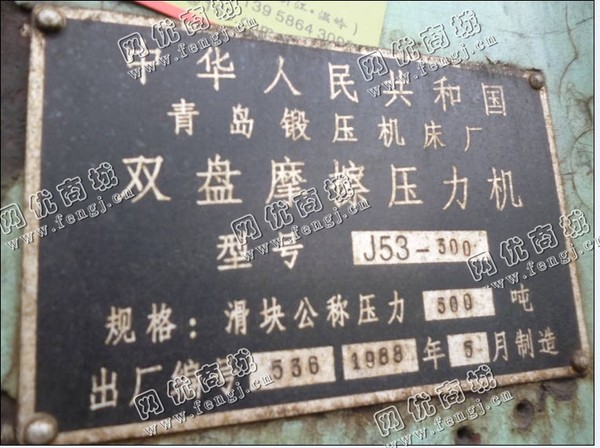 江·温岭)
39 5864300
中华人民共和国
青岛锻压机床厂
双盘摩擦压力机
型号 J53-300
规格：滑块公称压力 300 吨
出厂编号 536 1988 年 5 月制造
网优商城
www.fengj.cn
网优商城
www.fengj.cn
网优商城
www.fengj.cn
网优商城
www.fengj.cn
网优商城
www.fengj.cn
网优商城
www.fengj.cn
网优商城
www.fengj.cn